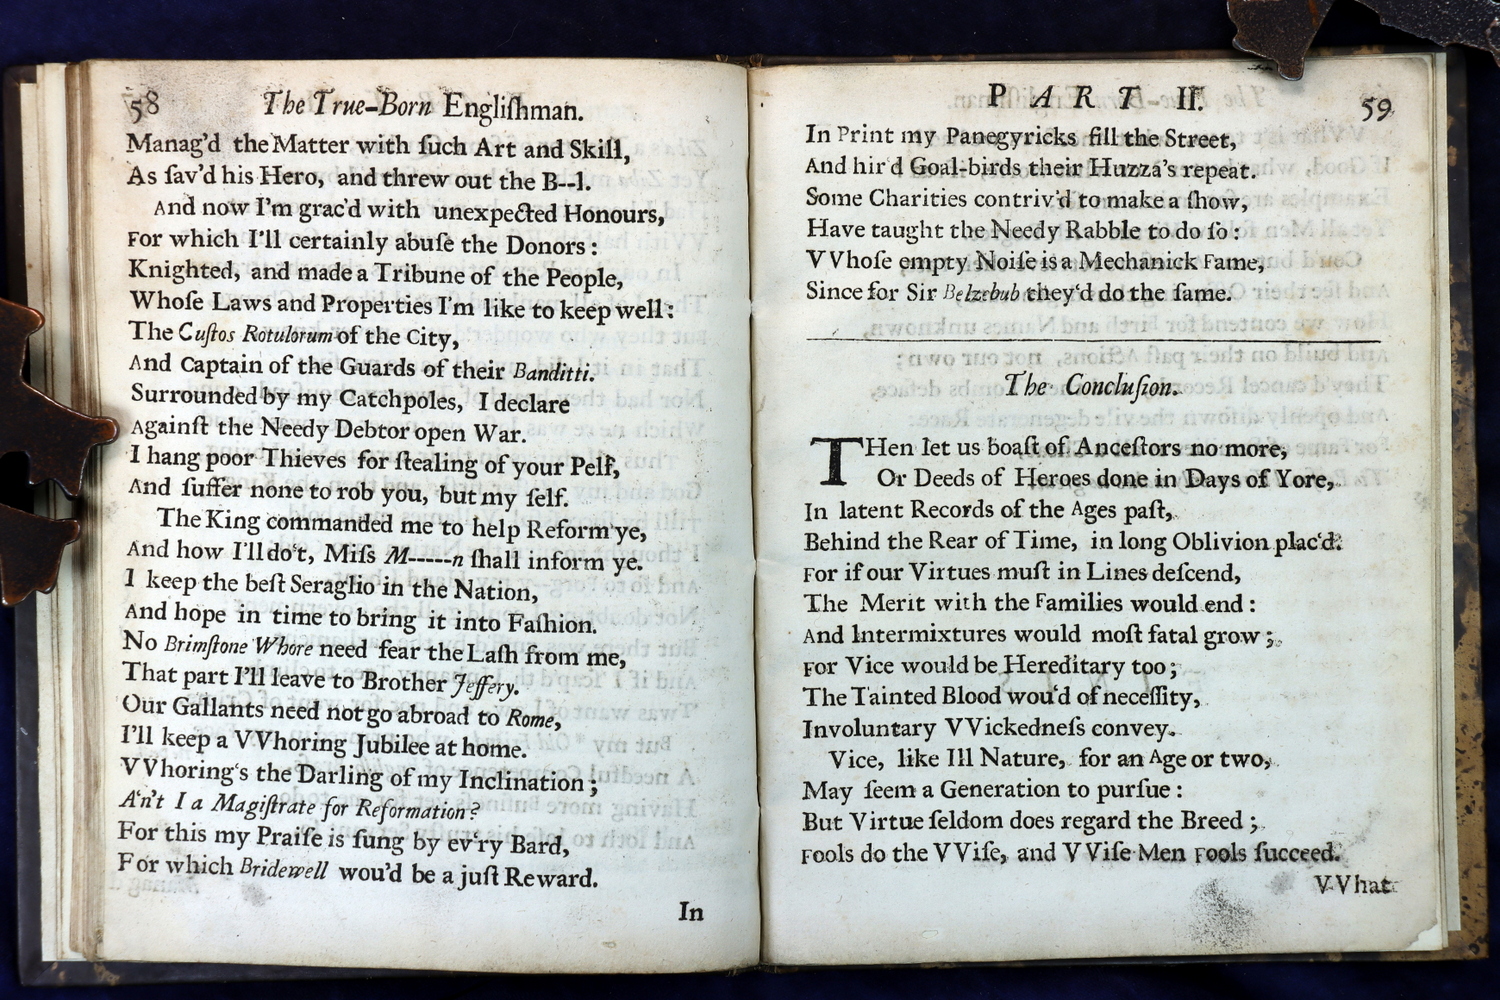 58 The True-Born Engliſhman.
Manag'd the Matter with ſuch Art and Skill,
As ſav'd his Hero, and threw out the B--l.
And now I'm grac'd with unexpected Honours,
For which I'll certainly abuſe the Donors:
Knighted, and made a Tribune of the People,
Whoſe Laws and Properties I'm like to keep well:
The Cuſtos Rotulorum of the City,
And Captain of the Guards of their Banditti.
Surrounded by my Catchpoles, I declare
Againſt the Needy Debtor open War.
I hang poor Thieves for ſtealing of your Pelf,
And ſuffer none to rob you, but my ſelf.
The King commanded me to help Reform ye,
And how I'll do't, Miſs M-----n ſhall inform ye.
I keep the beſt Seraglio in the Nation,
And hope in time to bring it into Faſhion.
No Brimſtone Whore need fear the Laſh from me,
That part I'll leave to Brother Jeffery.
Our Gallants need not go abroad to Rome,
I'll keep a VVhoring Jubilee at home.
VVhoring's the Darling of my Inclination;
A'n't I a Magiſtrate for Reformation?
For this my Praiſe is ſung by ev'ry Bard,
For which Bridewell wou'd be a juſt Reward.
In
PART II. 59
In Print my Panegyricks fill the Street,
And hir'd Goal-birds their Huzza's repeat.
Some Charities contriv'd to make a ſhow,
Have taught the Needy Rabble to do ſo:
VVhoſe empty Noiſe is a Mechanick Fame,
Since for Sir Belzebub they'd do the ſame.
The Concluſion.
THen let us boaſt of Anceſtors no more,
Or Deeds of Heroes done in Days of Yore,
In latent Records of the Ages paſt,
Behind the Rear of Time, in long Oblivion plac'd.
For if our Virtues muſt in Lines deſcend,
The Merit with the Families would end:
And Intermixtures would moſt fatal grow;
For Vice would be Hereditary too;
The Tainted Blood wou'd of neceſſity,
Involuntary VVickedneſs convey.
Vice, like Ill Nature, for an Age or two,
May ſeem a Generation to purſue:
But Virtue ſeldom does regard the Breed;
Fools do the VViſe, and VViſe Men Fools ſucceed.
VVhat